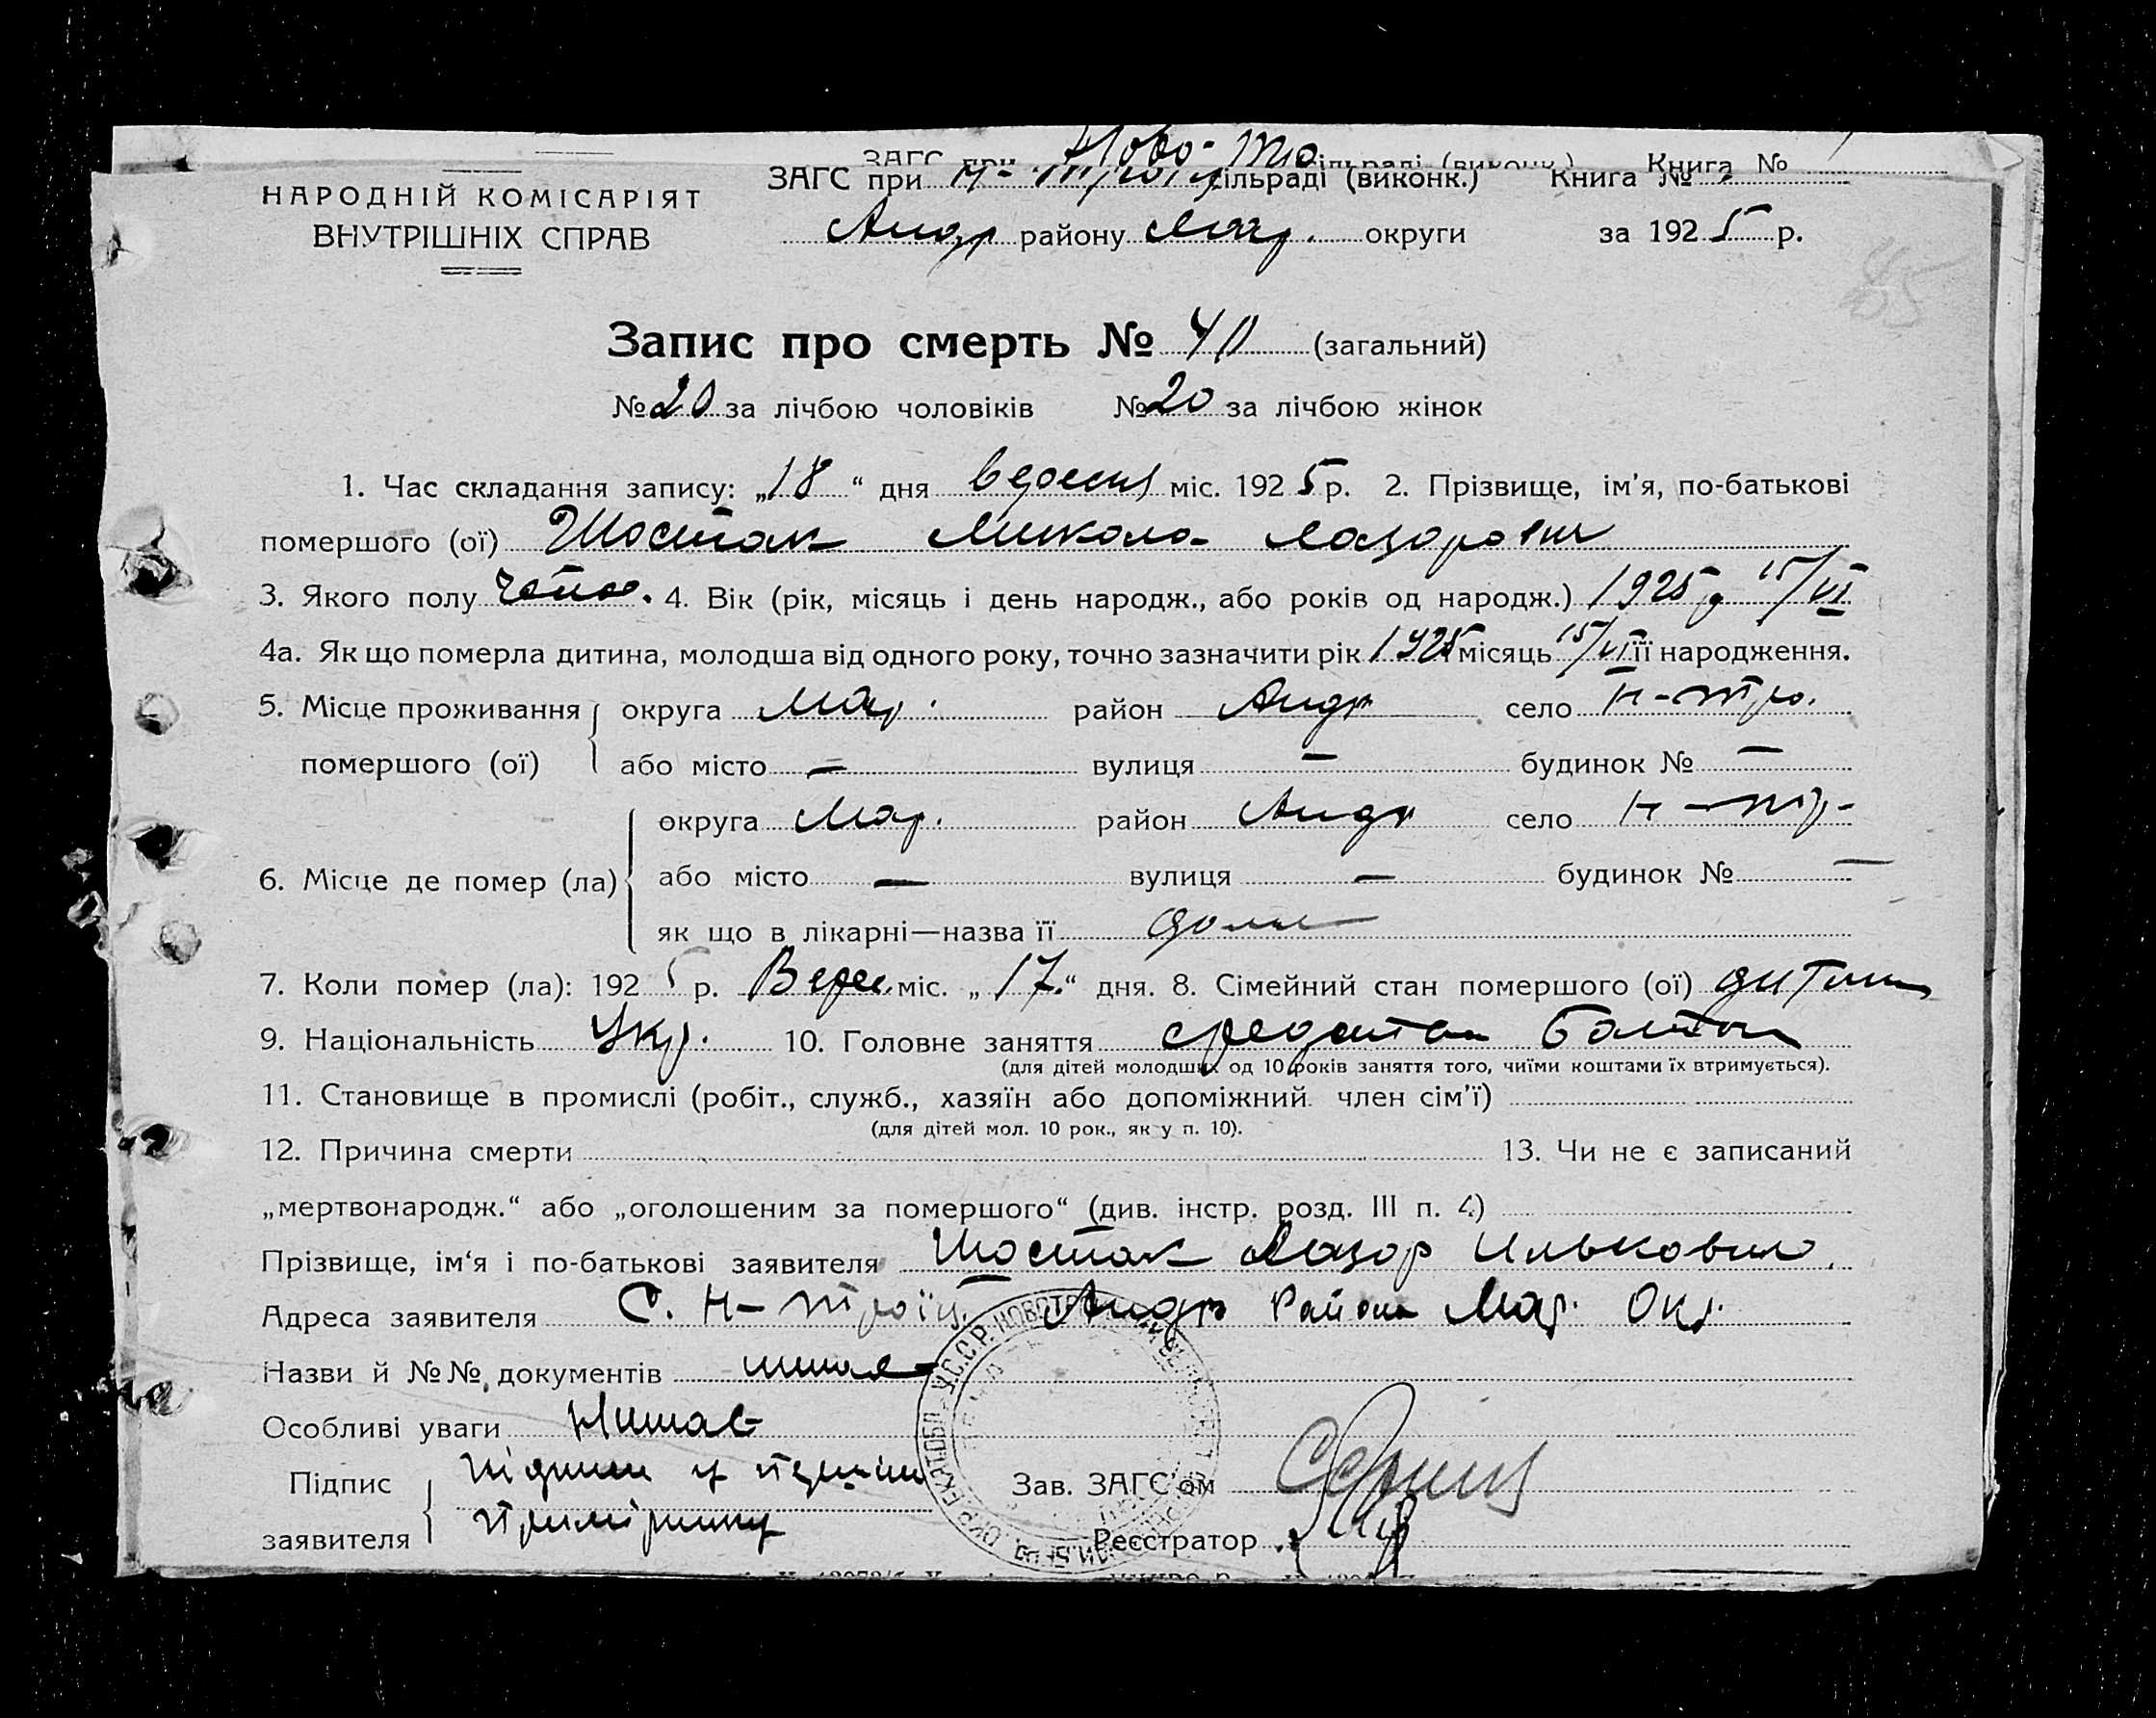 ЗАГС при Ново-Тро сільраді (виконк.) Книга №
НАРОДНІЙ КОМІСАРІЯТ
ВНУТРІШНІХ СПРАВ
ЗАГС при Н-Троїц сільраді (виконк.) Книга №
Андр району Мар. округи за 1925 р.
45
Запис про смерть № 40 (загальний)
№ 20 за лічбою чоловіків № 20 за лічбою жінок
1. Час складання запису: „18“ дня вересня міс. 1925 р. 2. Прізвище, ім'я, по-батькові
помершого (ої) Шостак Микола Лазорович
3. Якого полу чолов. 4. Вік (рік, місяць і день народж., або років од народж.) 1925 р 15/VI
4а. Як що померла дитина, молодша від одного року, точно зазначити рік 1925 місяць 15/VI її народження.
5. Місце проживання помершого (ої) округа Мар. район Андр село Н-Тро.
або місто — вулиця — будинок № —
6. Місце де помер (ла) округа Мар. район Андр село Н-Тр-
або місто — вулиця — будинок № —
як що в лікарні—назва її дома
7. Коли помер (ла): 1925 р. Верес. міс. „17.“ дня. 8. Сімейний стан помершого (ої) дитина
9. Національність Укр. 10. Головне заняття средства батька
(для дітей молодших од 10 років заняття того, чиїми коштами їх втримується).
11. Становище в промислі (робіт., служб., хазяїн або допоміжний член сім'ї)
(для дітей мол. 10 рок., як у п. 10).
12. Причина смерти 13. Чи не є записаний
„мертвонародж.“ або „оголошеним за помершого“ (див. інстр. розд. III п. 4)
Прізвище, ім'я і по-батькові заявителя Шостак Лазор Илькович
Адреса заявителя С. Н-Троїц. Андр Района Мар. Окр.
Назви й №№ документів нимає
Особливі уваги Нимає
Підпис заявителя підпис у першім
примірнику
Зав. ЗАГС'ом
Реєстратор